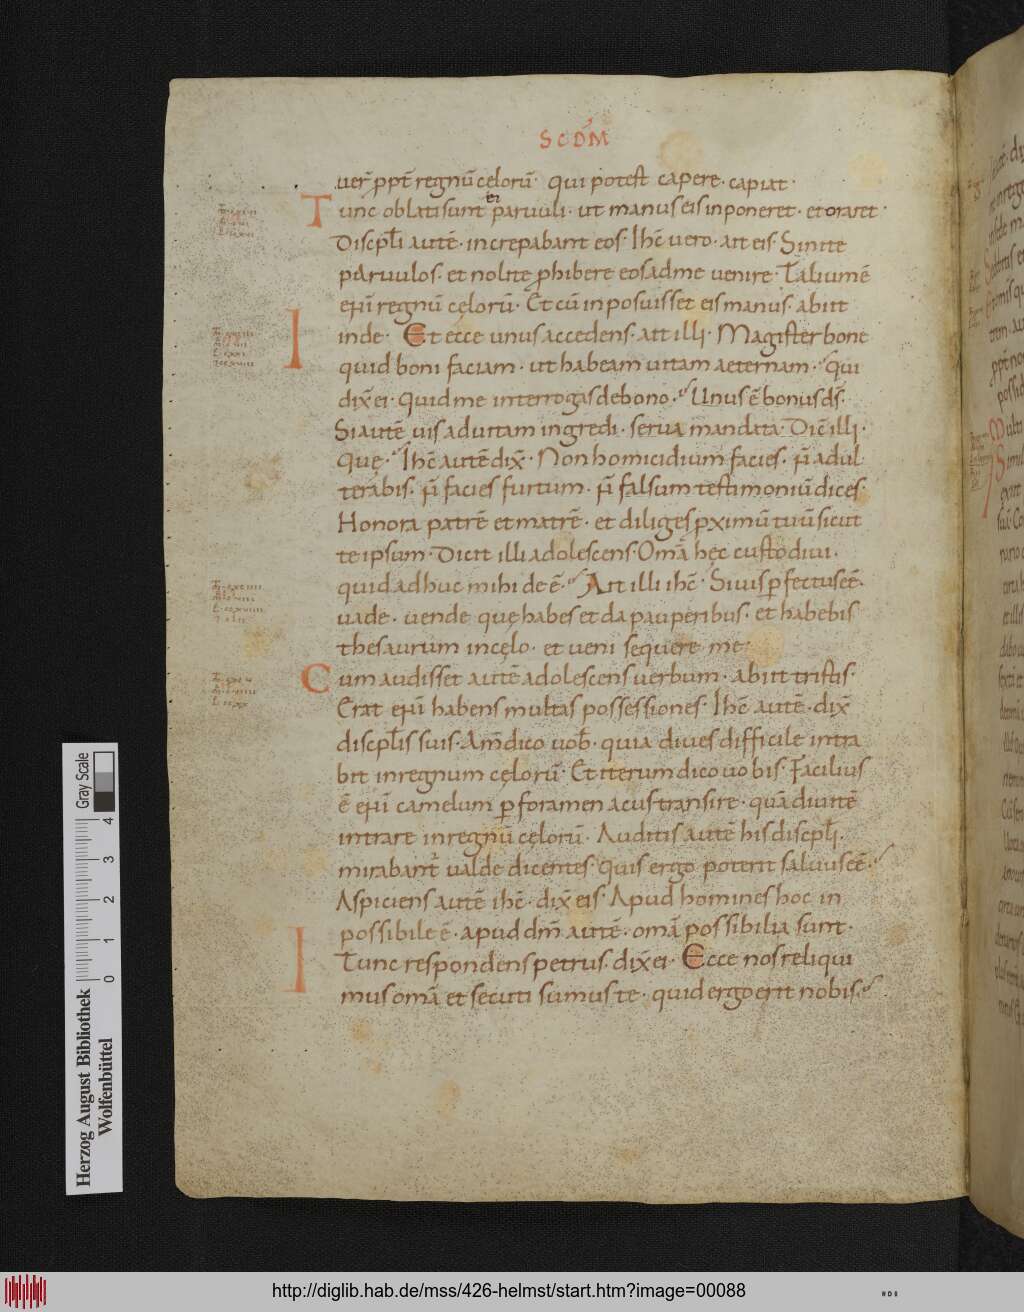 SCDM̄
uer̄ ꝓpt̄ regnū cęlorū · qui potest capere · capiat ·
Tunc oblati sunt ei paruuli · ut manus eis inponeret · et oraret ·
Discpl̄i autē · increpabant eos · Ihc̄ uero · ait eis · Sinite
paruulos · et nolite ꝓhibere eos ad me uenire · Talium ē
enī regnū cęlorū · Et cū inposuisset eis manus · abiit
inde · Et ecce unus accedens · ait illi · Magister bone
quid boni faciam · ut habeam uitam aeternam · Qui
dix̄ ei · Quid me interrogas de bono · Unus ē bonus d̄s ·
Si autē uis ad uitam ingredi · serua mandata · Dic̄ illi ·
Quę · Ihc̄ autē dix̄ · Non homicidium facies · n̄ adul
terabis · n̄ facies furtum · n̄ falsum testimoniū dices ·
Honora patrē et matrē · et diliges ꝓximū tuū sicut
te ipsum · Dicit illi adolescens · Omā hęc custodiui ·
quid adhuc mihi de ē · Ait illi ihc̄ · Si uis ꝑfectus eē ·
uade · uende quę habes et da pauperibus · et habebis
thesaurum in cęlo · et ueni sequere me ·
Cum audisset autē adolescens uerbum · abiit tristis ·
Erat enī habens multas possessiones · Ihc̄ autē · dix̄
discpl̄is suis · Am̄ dico uob̄ · quia diues difficile intra
bit in regnum cęlorū · Et iterum dico uobis · Facilius
ē enī camelum ꝑ foramen acus transire · quā diuitē
intrare in regnū cęlorū · Auditis autē his discpl̄i ·
mirabant̄ ualde dicentes · Quis ergo poterit saluus eē ·
Aspiciens autē ihc̄ · dix̄ eis · Apud homines hoc in
possibile ē · apud dm̄ autē · omā possibilia sunt ·
Tunc respondens petrus dix̄ ei · Ecce nos reliqui
mus omā et secuti sumus te · quid ergo erit nobis ·
Herzog August Bibliothek
Wolfenbüttel
0 1 2 3 4
Gray Scale
http://diglib.hab.de/mss/426-helmst/start.htm?image=00088